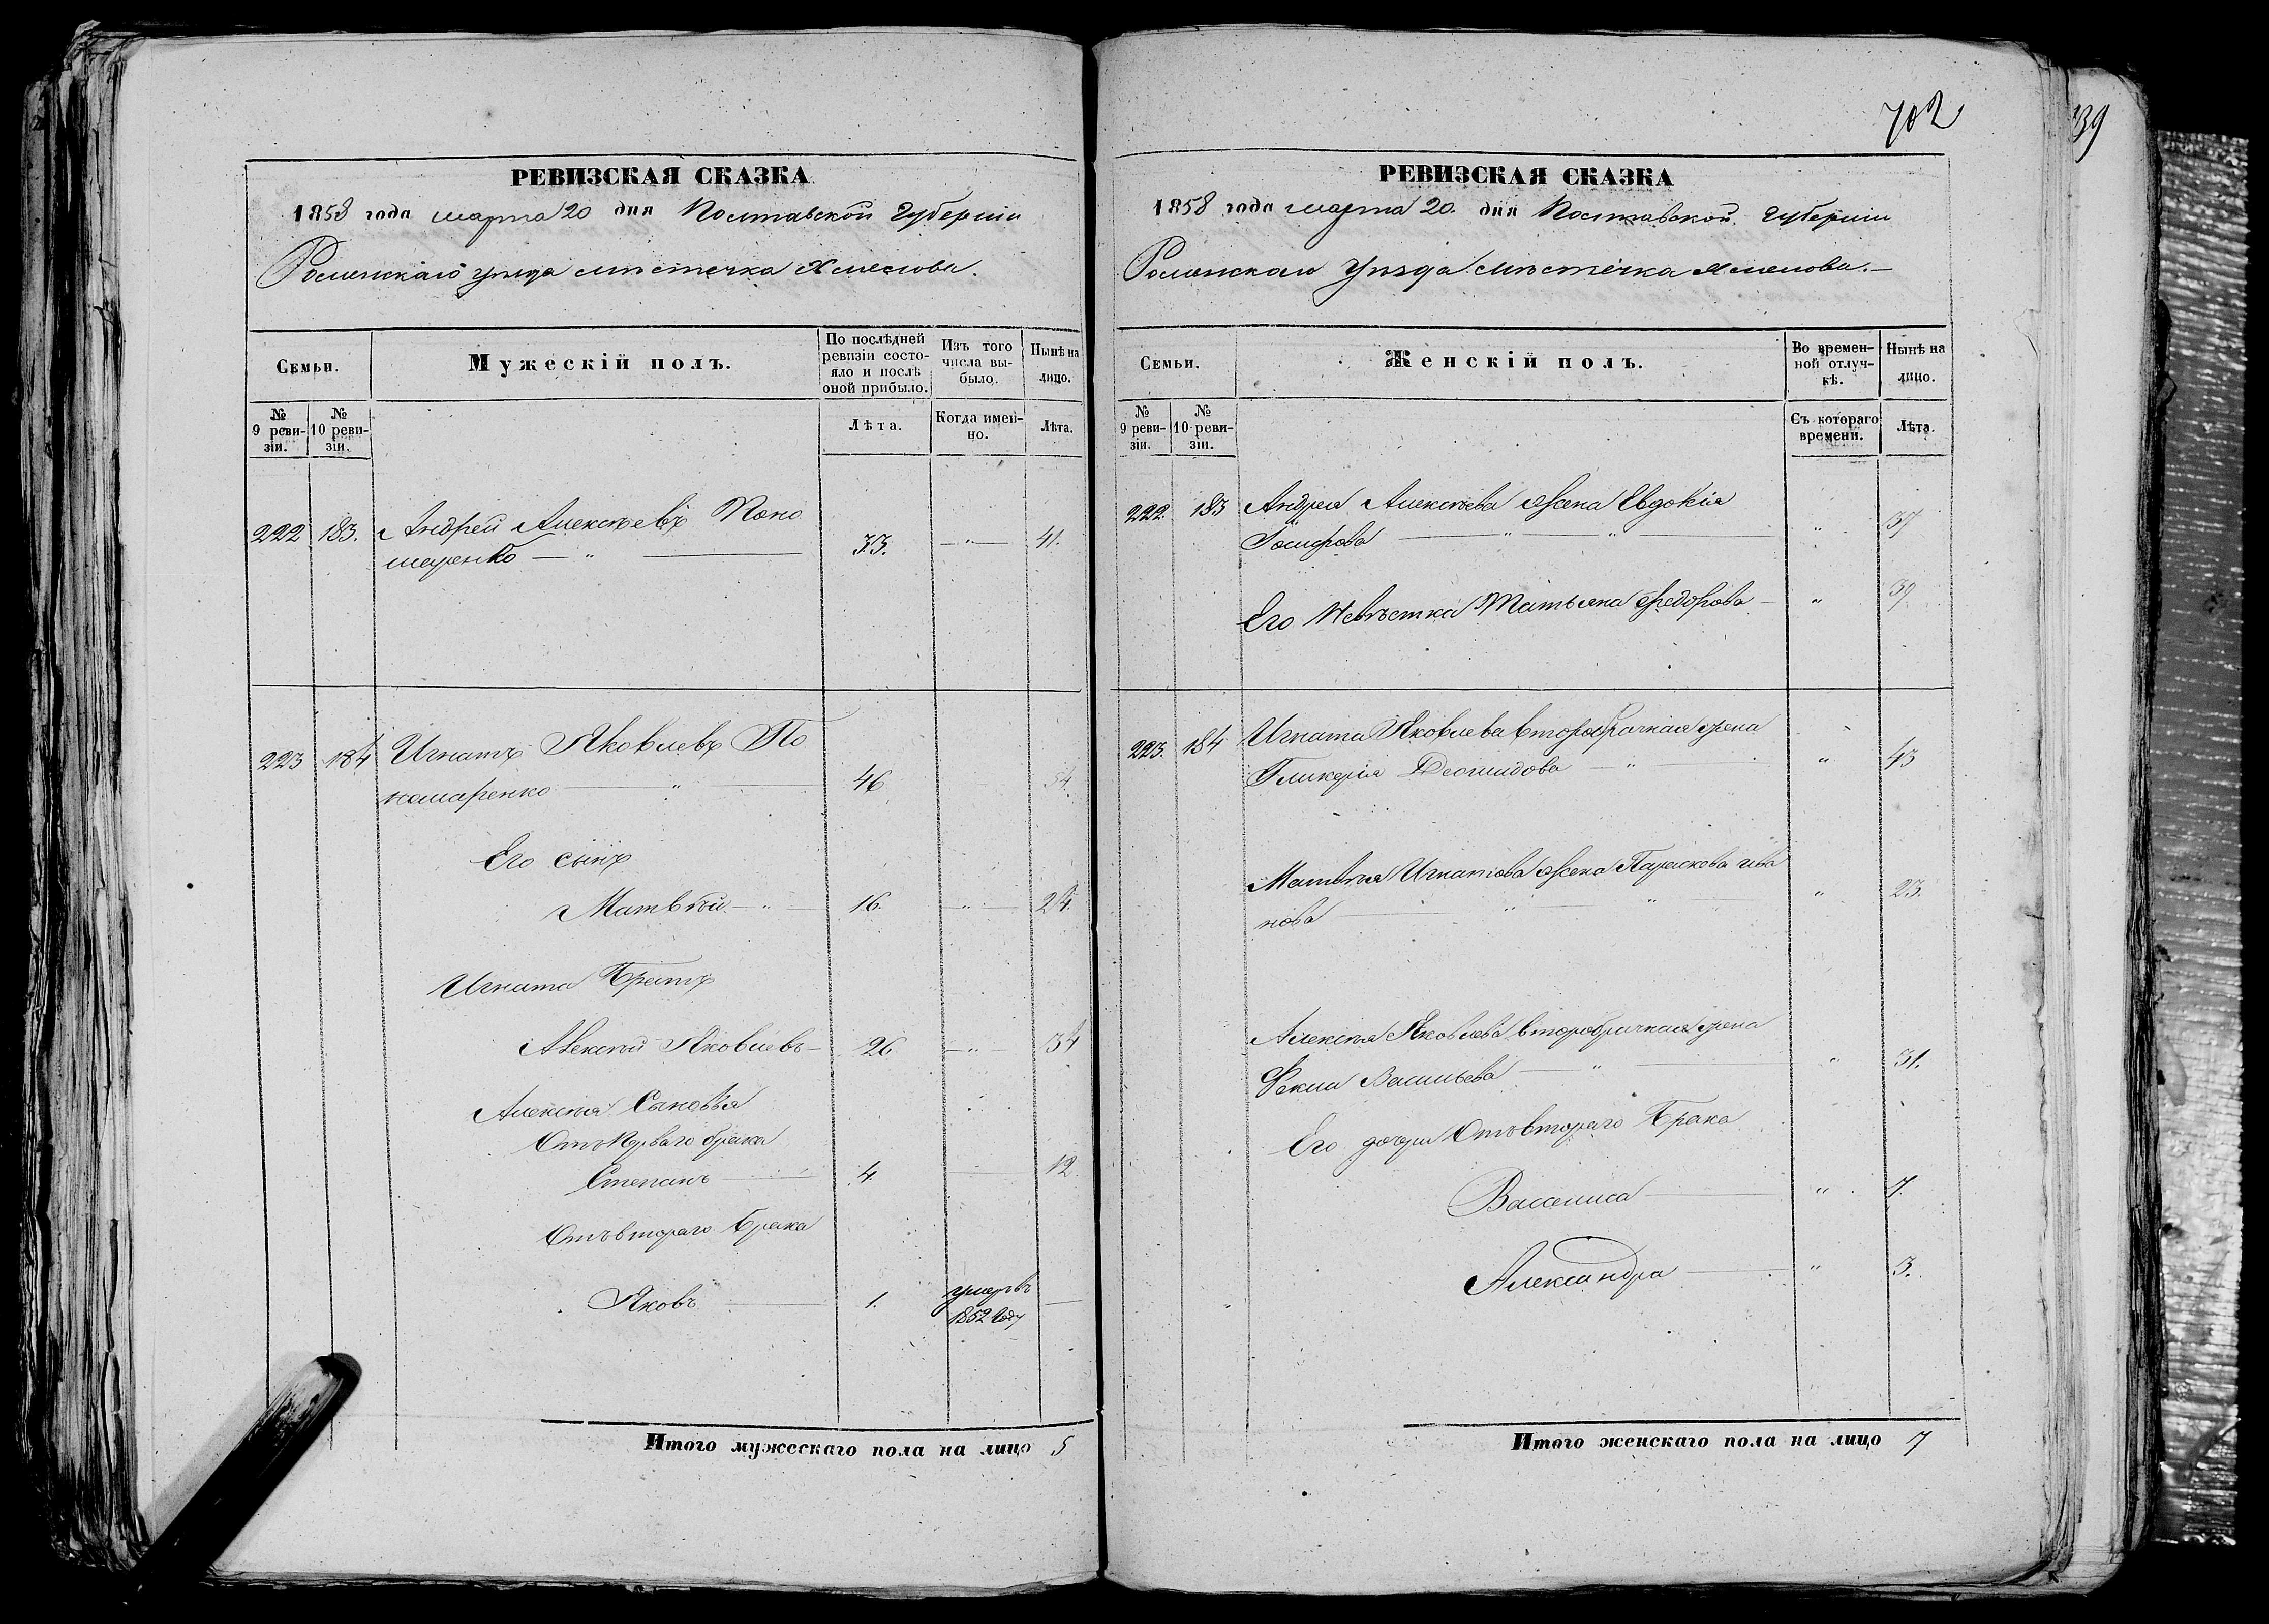 702
39
РЕВИЗСКАЯ СКАЗКА
1858 года марта 20 дня Полтавской Губерніи
Роменскаго уѣзда мѣстечка Хмелова.
Семьи.
Мужескій полъ.
По послѣдней ревизіи состояло и послѣ оной прибыло.
Изъ того числа выбыло.
Нынѣ на лицо.
№ 9 ревизіи.
№ 10 ревизіи.
Лѣта.
Когда именно.
Лѣта.
222 183. Андрей Алексѣевъ Поно
маренко — " — 33. — " — 41.
223 184 Игнатъ Яковлевъ По
номаренко — " — 46 54.
Его сынъ
Матвѣй — " — 16. — " — 24.
Игната Братъ
Алексѣй Яковлевъ — 26 — " — 34
Алексѣя Сыновья
Отъ Перваго брака
Степанъ — 4. — 12
Отъ втораго брака
Яковъ — 1. умеръ въ
1852 году —
Итого мужескаго пола на лицо 5
РЕВИЗСКАЯ СКАЗКА
1858 года марта 20. дня Полтавской Губерніи
Роменскаго Уѣзда мѣстечка Хмелова. —
Семьи.
Женскій полъ.
Во временной отлучкѣ.
Нынѣ на лицо.
№ 9 ревизіи.
№ 10 ревизіи.
Съ котораго времени.
Лѣта.
222. 183 Андрея Алексѣева жена Евдокія
— " — " — " 37
Его Невѣстка Татьяна Федорова — " 39
223. 184 Игната Яковлева второбрачная жена
Гликерія — " — " 43
Матвѣя Игнатова жена Параскева Ива
нова " " " 23.
Алексѣя Яковлева второбрачная жена
Фекла Васильева — " — " 31.
Его дочери Отъ втораго Брака
Василиса — " 7.
Александра — " 3.
Итого женскаго пола на лицо 7